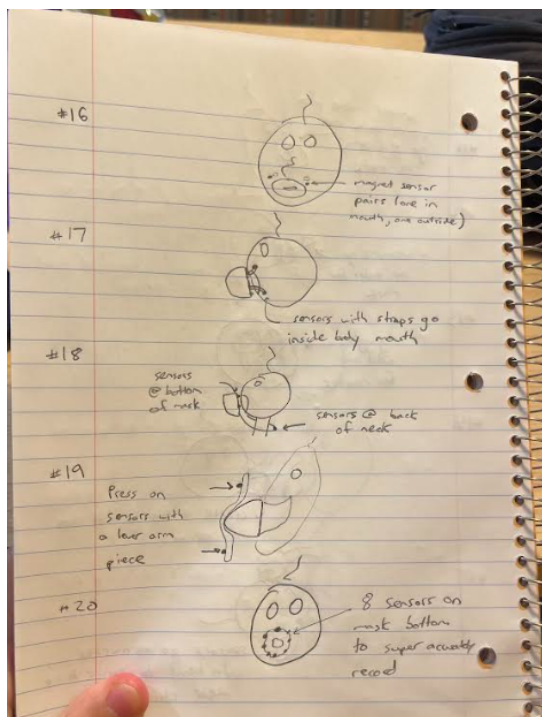 #16
magnet sensor
pairs (one in
mouth, one outside)
#17
sensors with straps go
inside baby mouth
#18
sensors
@ bottom
of mask
sensors @ back
of neck
#19
Press on
sensors with
a lever arm
piece
#20
8 sensors on
mask bottom
to super accurately
record